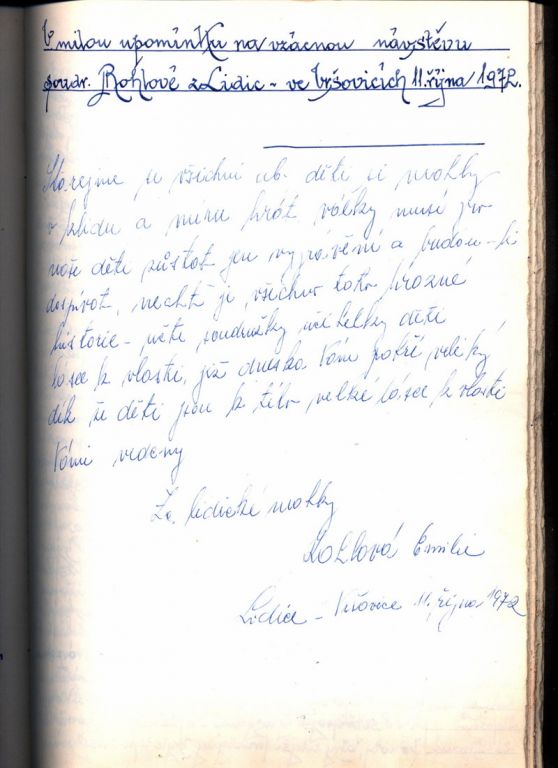 V milou upomínku na vzácnou návštěvu
soudr. Rohlové z Lidic - ve Vršovicích 11. října 1972.
se všichni ab. děti si mohly
v klidu a míru hrát, války musí pro
naše děti zůstat jen vyprávění a budou-li
dospívat, nechť je všichno toto hrozné
historie - učte soudružky učitelky děti
lásce k vlasti, již dneska Vám patří veliký
dík že děti jsou k této velké lásce k vlasti
Vámi vedeny
Za lidické matky
Rohlová Emilie
Lidice - Vršovice 11. října 1972